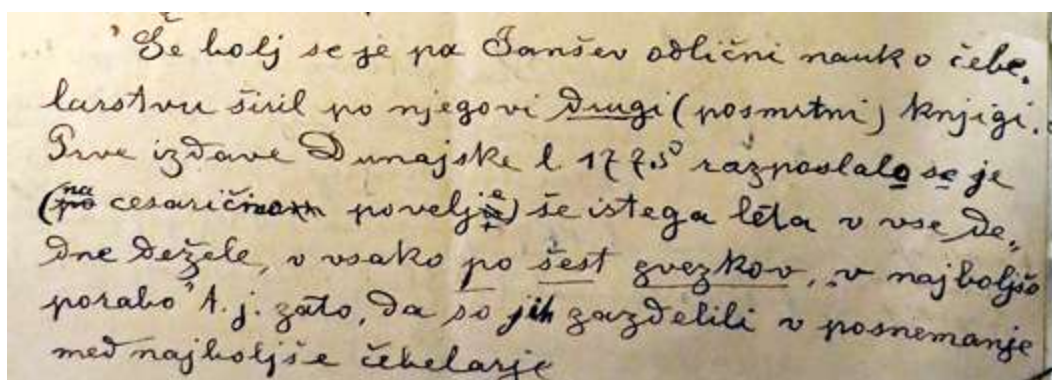 Še bolj se je pa Janšev odlični nauk o čebe-
larstvu širil po njegovi drugi (posmrtni) knjigi.
Prve izdave Dunajske l. 1775 razposlalo se je
(na cesaričino povelje) še istega léta v vse de-
dne dežele, v vsako po šest zvezkov, „v najboljšo
porabo" t. j. zato, da so jih razdelili v posnemanje
med najboljše čebelarje